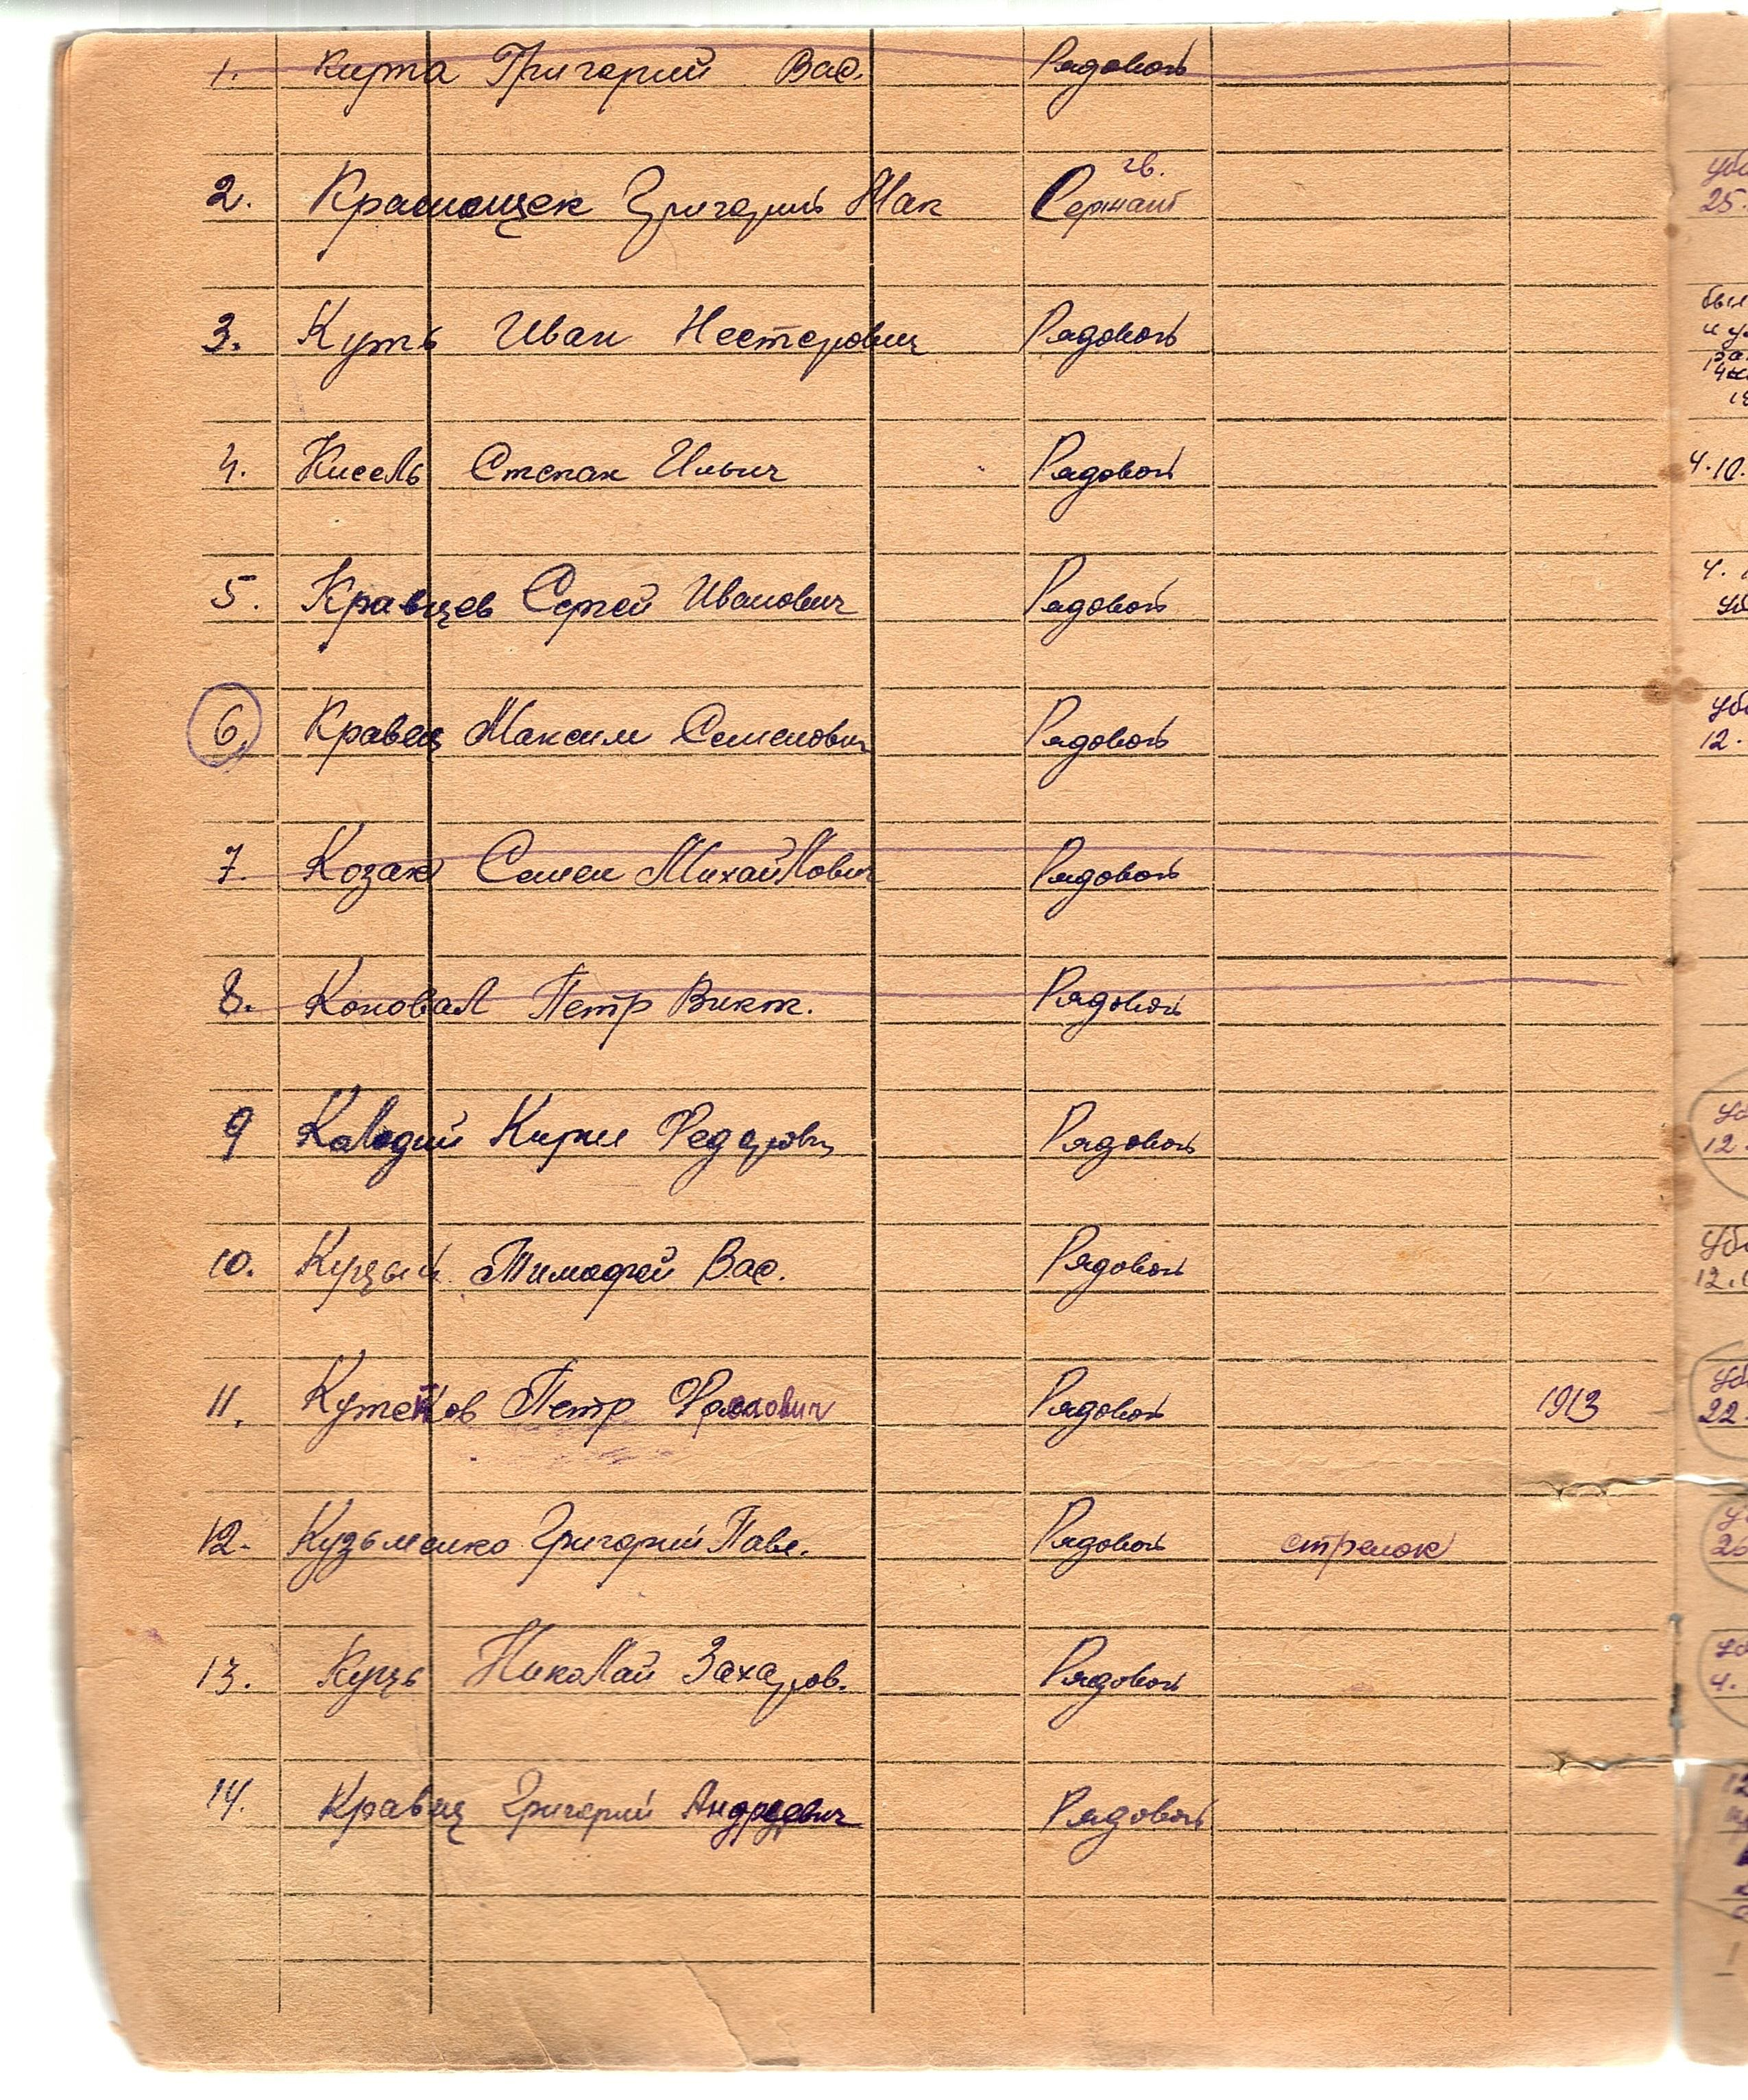 1. Кирта Григорий Вас. Рядовой
2. Григорий Мак гв. Сержант
3. Куть Иван Нестерович Рядовой
4. Кисель Степан Ильич Рядовой
4.10.
5. Кравцев Сергей Иванович Рядовой
6. Кравец Максим Семенович Рядовой
12.
7. Козак Семен Михайлович Рядовой
8. Коновал Петр Викт. Рядовой
9 Калодий Кирил Федорович Рядовой
12.
10. Куцый Тимофей Вас. Рядовой
11. Петр Рядовой 1913
22.
12. Кузьменко Григорий Павл. Рядовой стрелок
26
13. Куць Николай Захаров. Рядовой
4.
14. Кравец Григорий Андреевич Рядовой